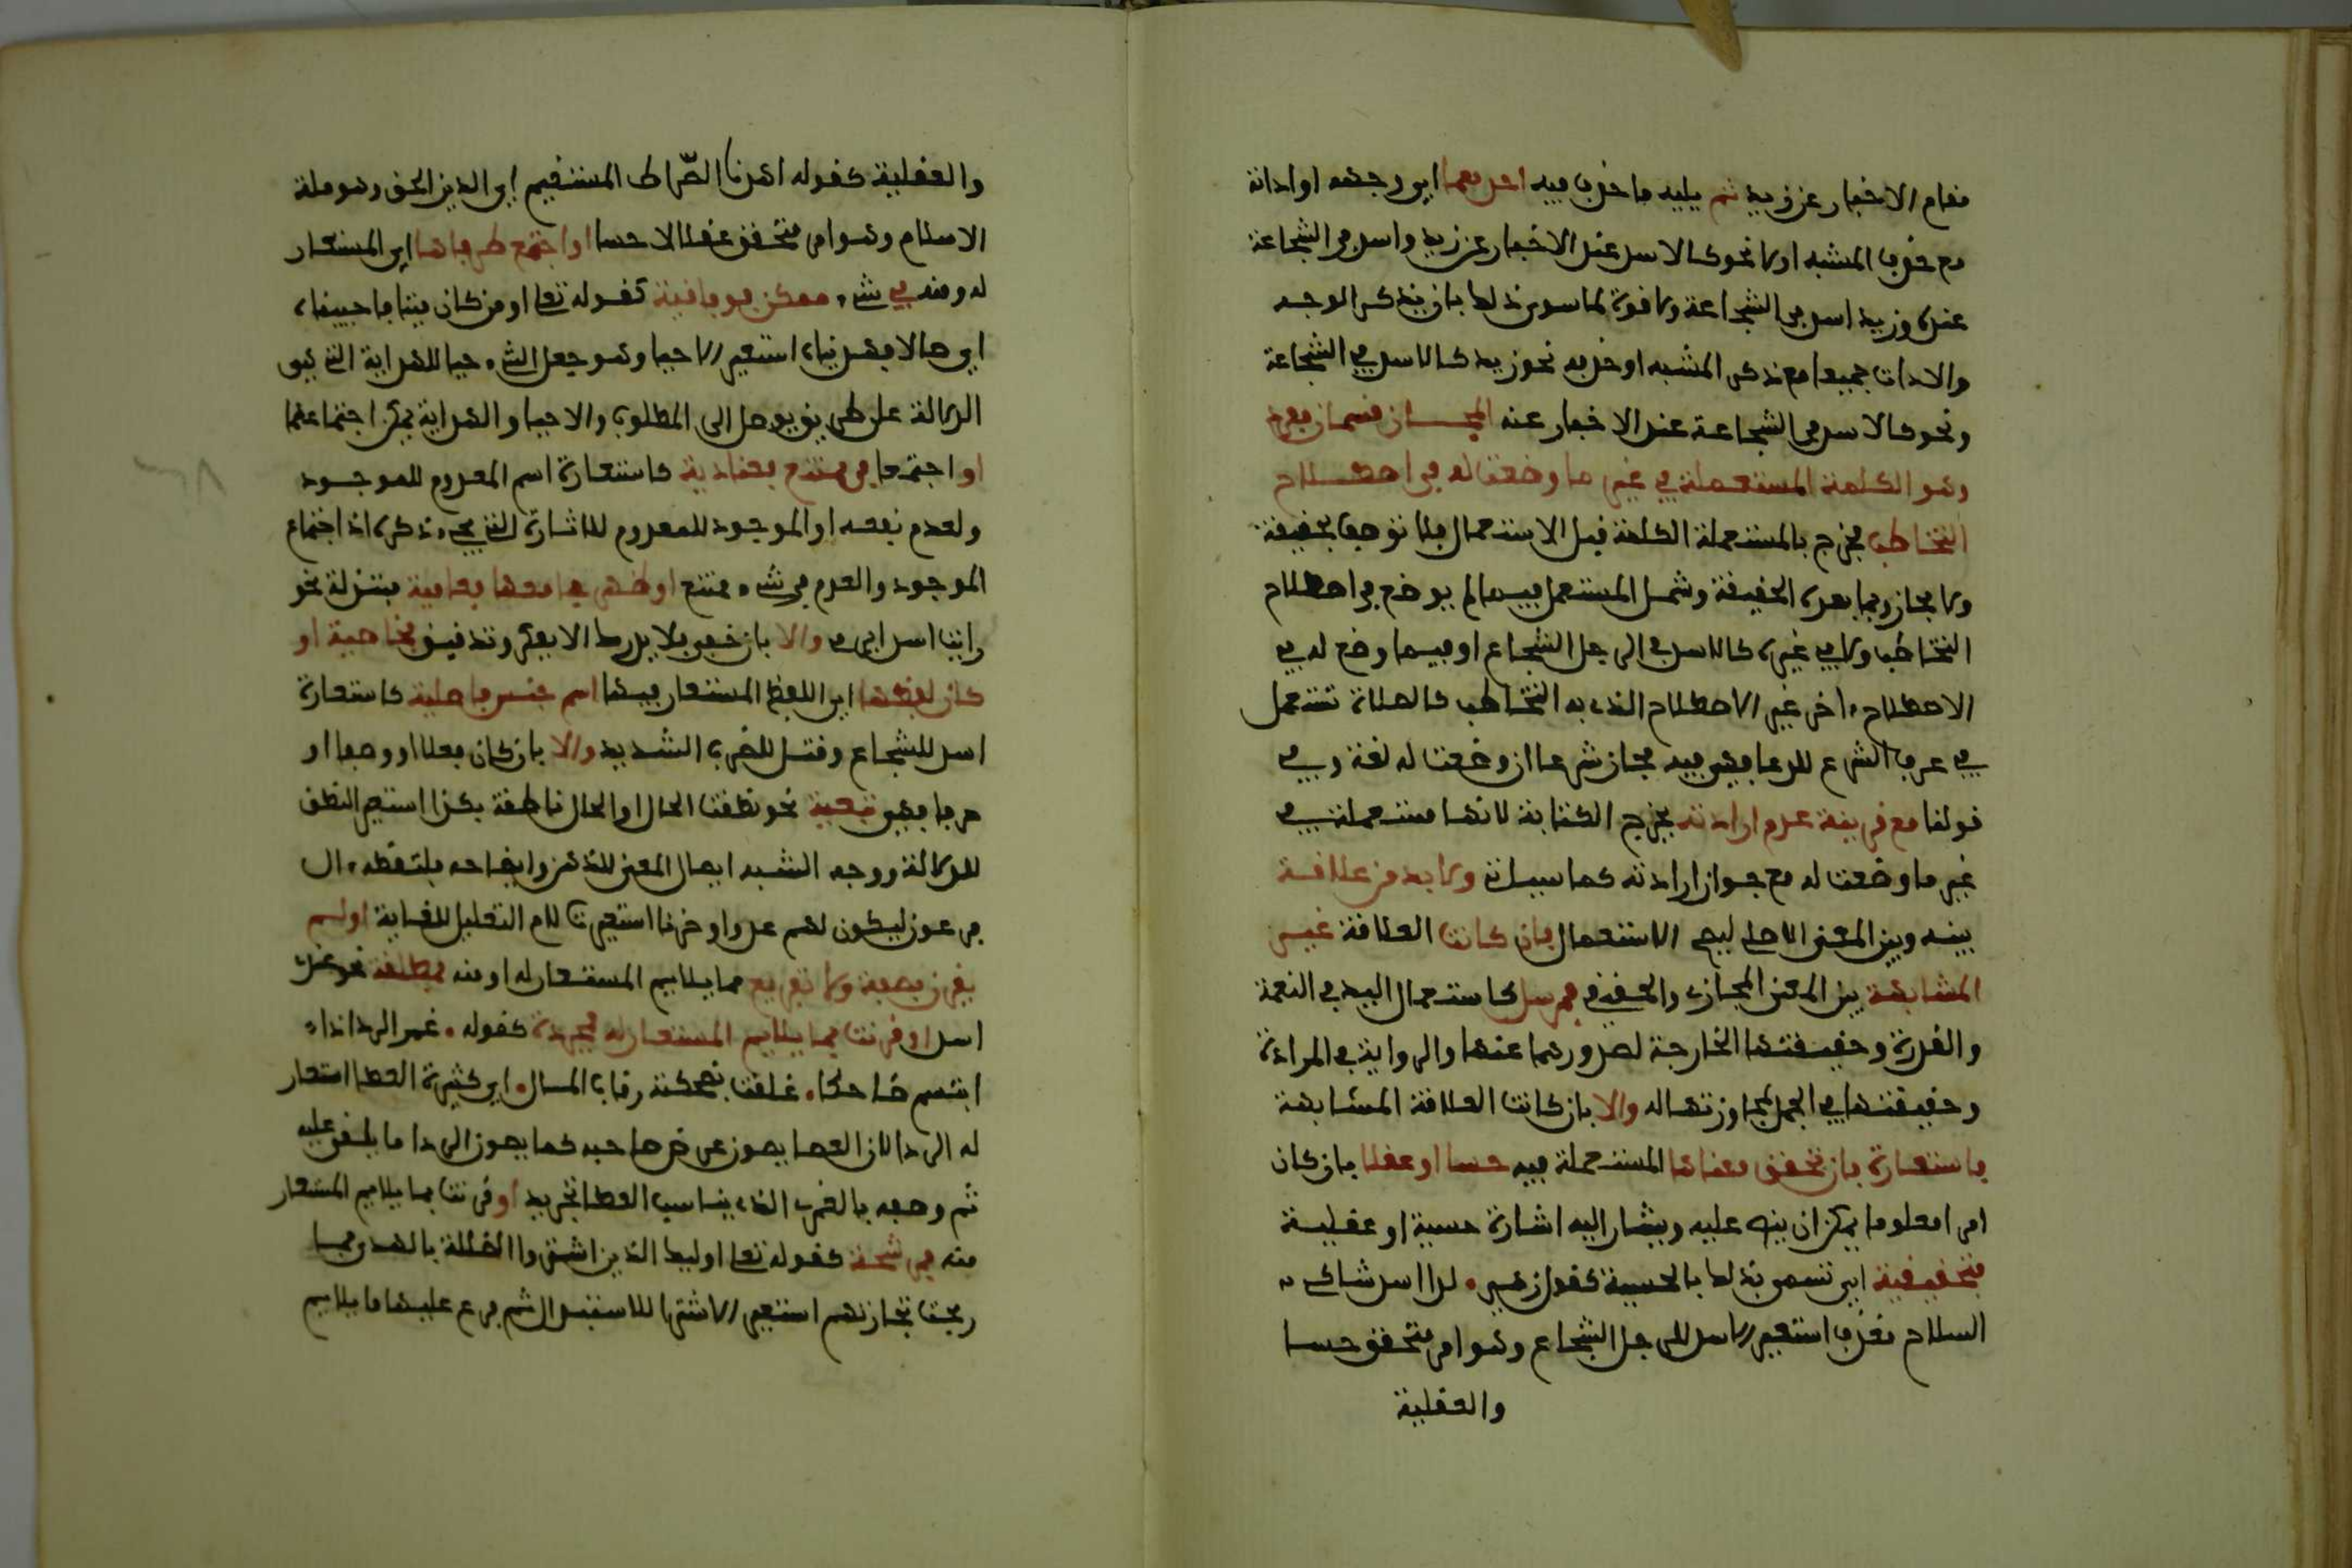 مقام الاخبار عن زيد ثم يليه ما حذف فيه احدهما اي وجهه او اداته
مع حذف المشبه اولا نحو كالاسد عند الاخبار عن زيد واسد في الشجاعة
عنده وزيد اسد في الشجاعة ولا قوة لما سوى ذلك بان يذكر الوجه
والادات جميعا مع ذكر المشبه او حذفه نحو زيد كالاسد في الشجاعة
ونحو كالاسد في الشجاعة عند الاخبار عنه المجاز قسمان مفرد
وهو الكلمة المستعملة في غير ما وضعت له في اصطلاح
التخاطب فخرج بالمستعملة الكلمة قبل الاستعمال فلا توصف بحقيقة
ولا مجاز وبما بعده الحقيقة وشمل المستعمل فيما لم يوضع في اصطلاح
التخاطب ولا في غيره كالاسد في الرجل الشجاع او فيما وضع له في
الاصطلاح ءاخر غير الاصطلاح الذي به التخاطب كالصلاة تستعمل
في عرف الشرع للدعا فهي فيه مجاز شرعا ان وضعت له لغة وفي
قولنا مع قرينة عدم ارادته يخرج الكناية لانها مستعملة في
غير ما وضعت له مع جواز ارادته كما سياتي ولا بد من علاقة
بينه وبين المعنى الاصلي ليصح الاستعمال فان كانت العلاقة غير
المشابهة بين المعنى المجازي والحقيقي فمرسل كاستعمال اليد في النعمة
والقدرة وحقيقتها الجارحة لصدورهما عنها والراوية في المزادة
وحقيقتها في الجمل لمجاورتها له والا بان كانت العلاقة المشابهة
فاستعارة فان تحقق معناها المستعملة فيه حسا او عقلا بان كان
امرا معلوما يمكن ان ينص عليه ويشار اليه اشارة حسية او عقلية
فتحقيقية اي تسمى بذلك فالحسية كقول زهير . لدا اسد شاكي
السلاح مقذف استعير الاسد للرجل الشجاع وهو امر متحقق حسا
والعقلية
والعقلية كقوله اهدنا الصّراط المستقيم اي الدين الحق وهو ملة
الاسلام وهو امر متحقق عقلا لا حسا او اجتمع طرفاها اي المستعار
له ومنه في شيء ممكن فوفاقية كقوله تعا او من كان ميتا فاحييناه
اي ضالا فهديناه استعير الاحيا وهو جعل الشيء حيا للهداية التي هي
الدلالة على طريق يوصل الى المطلوب والاحيا والهداية يمكن اجتماعهما
او اجتمعا في ممتنع فعنادية كاستعارة اسم المعدوم للموجود
ولعدم نفعه او الموجود للمعدوم للاثارة التي يحيي ذكره اذ اجتماع
الموجود والعدم في شيء ممتنع او ظهر جامعها فعامية مبتذلة نحو
رايت اسدا يرمي والا بان خفي فلا يدرك الا بفكر وتدقيق فخاصية او
كان لفظها اي اللفظ المستعار فيها اسم جنس فاصلية كاستعارة
اسد للشجاع وقتل للضرب الشديد والا بان كان فعلا او وصفا او
حرفا فهي تبعية نحو نطقت الحال او الحال ناطقة بكذا استعير النطق
للدلالة ووجه الشبه ايصال المعنى للذهن وايضاحه فالتقطه ءال
فرعون ليكون لهم عدوا وحزنا استعيرت لام التعليل للغاية او لم
يقرن بصفة ولا تفريع مما يلايم المستعار له او منه فمطلقة نحو عندي
اسد او قرنت بما يلايم المستعار له فمجردة كقوله . غمر الردا اذا
ابتسم ضاحكا . غلقت لضحكته رقاب المال . اي كثيرة العطا استعار
له الردا لان العطا يصون عرض صاحبه كما يصون الردا ما يلقى عليه
ثم وصفه بالغمر الذي يناسب العطا تجريد او قرنت بما يلايم المستعار
منه فمرشحة كقوله تعا اوليك الذين اشتروا الضللة بالهدى فما
ربحت تجارتهم استعير الاشترا للاستبدال ثم فرع عليها ما يلايم